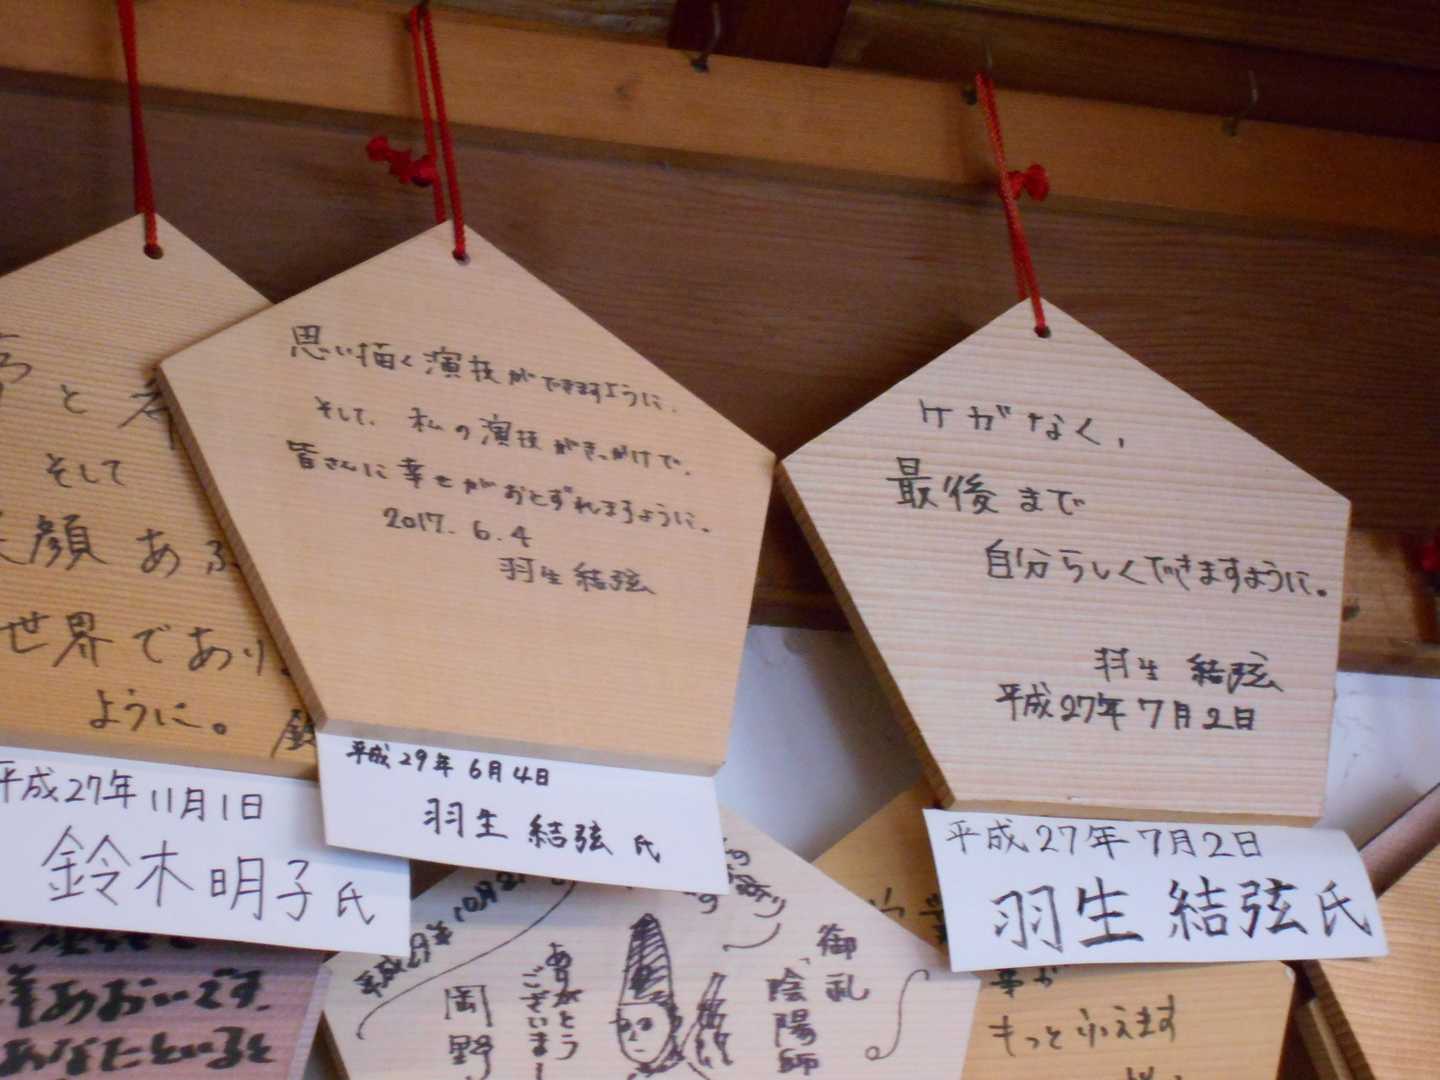 と
そして
笑顔あふ
世界であり
ように。
平成27年11月1日
鈴木明子氏
思い描く演技ができますように。
そして、私の演技がきっかけで、
皆さんに幸せがおとずれますように。
2017.6.4
羽生結弦
平成29年6月4日
羽生結弦氏
ケガなく、
最後まで
自分らしくできますように。
羽生結弦
平成27年7月2日
平成27年7月2日
羽生結弦氏
御礼
陰陽師
ありがとう
ございま
岡野
あおいです。
あなたといると
もっとふえます